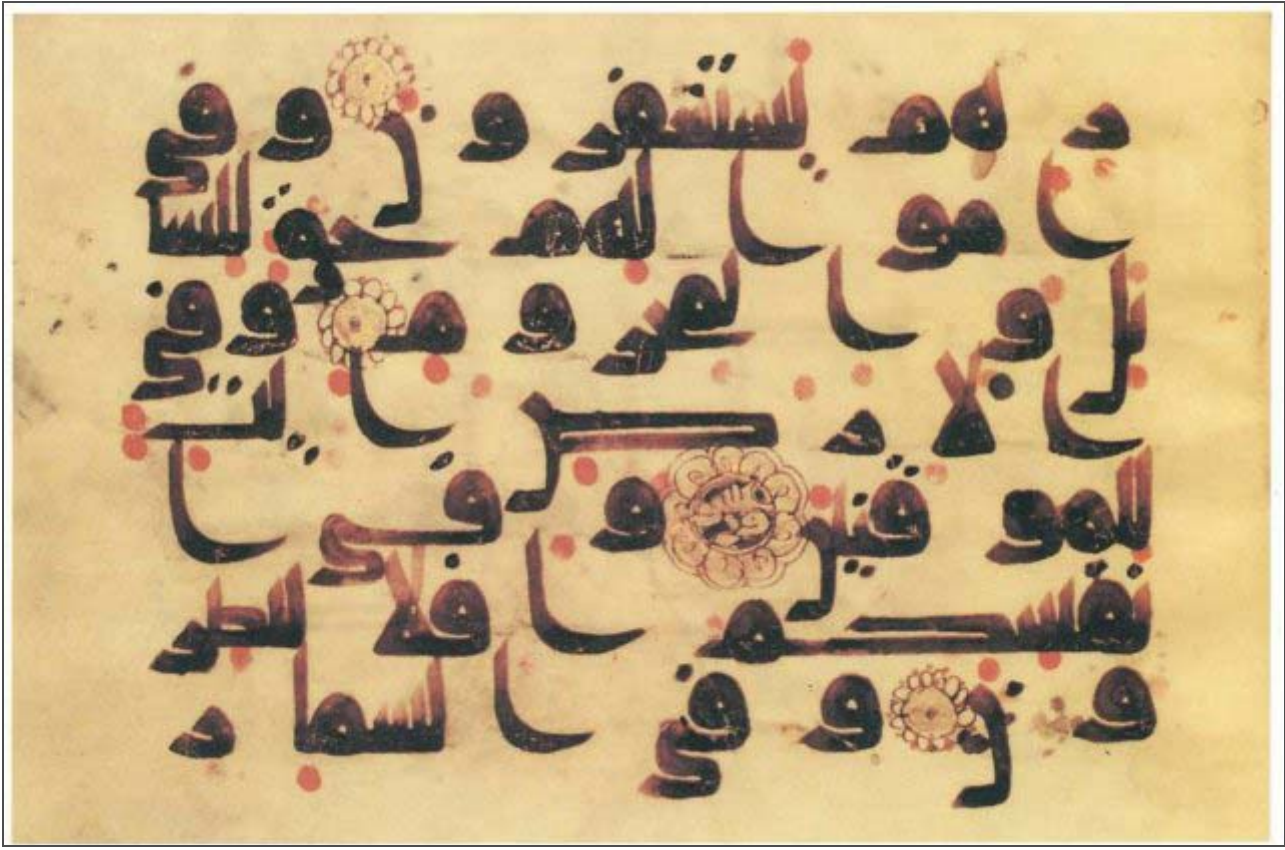 ر هم يستغفرون وفي
اموالهم حق للسا
ئل والمحروم وفي
الارض ايت
للموقنين وفي ا
نفسكم افلا تبصر
ون وفي السما ر